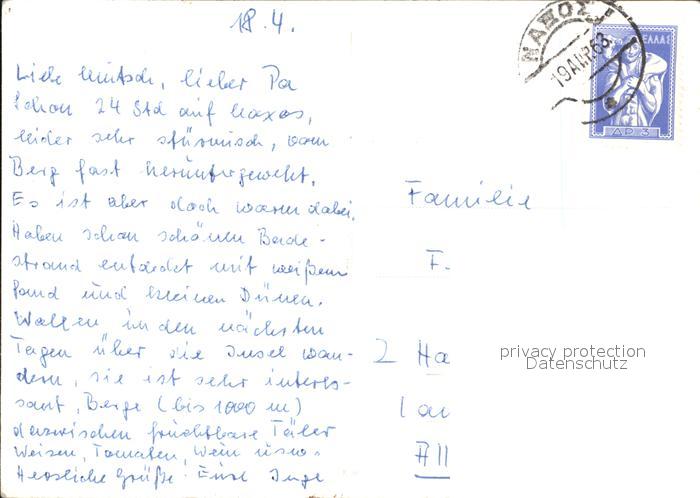 18.4.
ΝΑΞΟΣ
19 ΑΠΡ 63
ΕΛΛΑΣ
ΔΡ 3
Liebe Mutsch, lieber Pa
Schon 24 Std auf Naxos,
leider sehr stürmisch, vom
Berg fast heruntergeweht.
Es ist aber doch warm dabei.
Haben schon schönen Bade-
strand entdeckt mit weißem
Sand und kleinen Dünen.
Wollen in den nächsten
Tagen über die Insel wan-
dern, sie ist sehr interes-
sant, Berge (bis 1000 m)
dazwischen fruchtbare Täler
Weizen, Tomaten, Wein usw.
Herzliche Grüße! Eure Inge
Familie
F.
2 Ha
privacy protection
Datenschutz